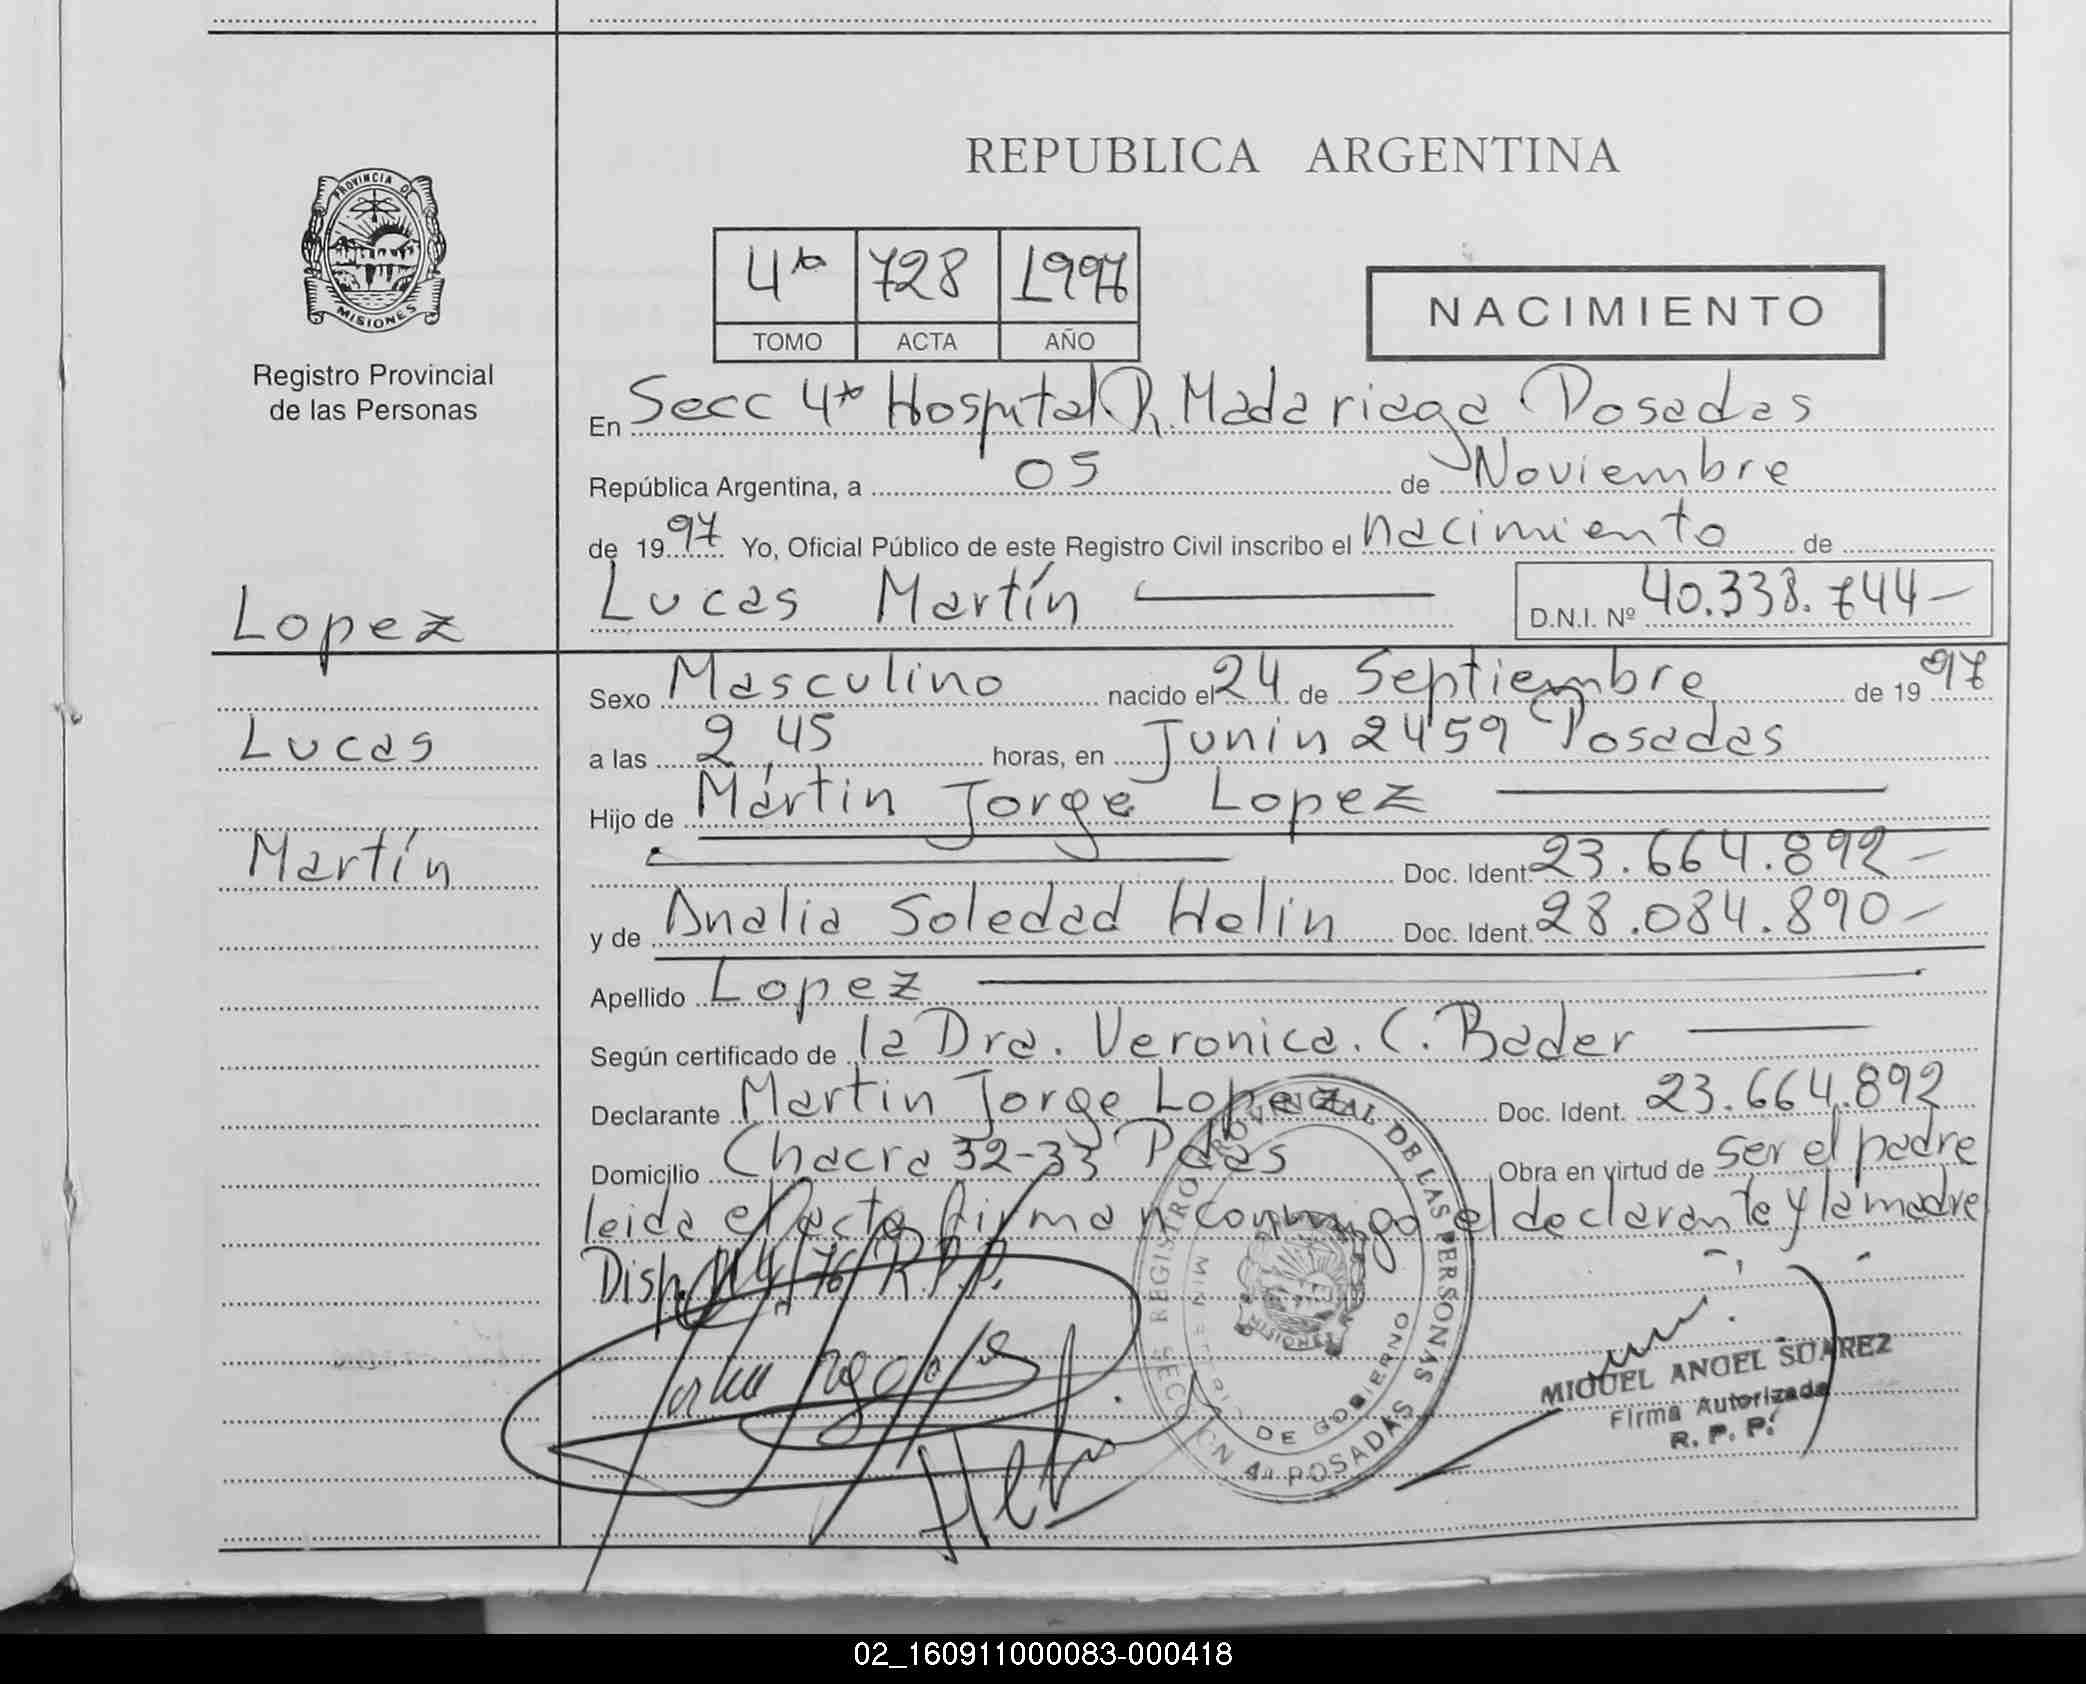 REPUBLICA ARGENTINA
PROVINCIA DE
MISIONES
Registro Provincial
de las Personas
4ta 728 1997
TOMO ACTA AÑO
NACIMIENTO
En Secc 4ta Hospital R. Madariaga Posadas
República Argentina, a 05 de Noviembre
de 1997 Yo, Oficial Público de este Registro Civil inscribo el nacimiento de
Lucas Martín D.N.I. Nº 40.338.744-
Lopez
Lucas
Martín
Sexo Masculino nacido el 24 de Septiembre de 1997
a las 2,45 horas, en Junin 2459 Posadas
Hijo de Martin Jorge Lopez
Doc. Ident. 23.664.892-
y de Analia Soledad Helin Doc. Ident. 28.084.890-
Apellido Lopez
Según certificado de la Dra. Veronica. C. Bader
Declarante Martin Jorge Lopez Doc. Ident. 23.664.892
Domicilio Chacra 32-33 Pdas Obra en virtud de ser el padre
leida el acta firman conmigo el declarante y la madre
Disp. 114/76 R.P.P.
REGISTRO PROVINCIAL DE LAS PERSONAS
MINISTERIO DE GOBIERNO
SECCION 4ta POSADAS
MISIONES
MIGUEL ANGEL SUAREZ
Firma Autorizada
R. P. P.
02_160911000083-000418